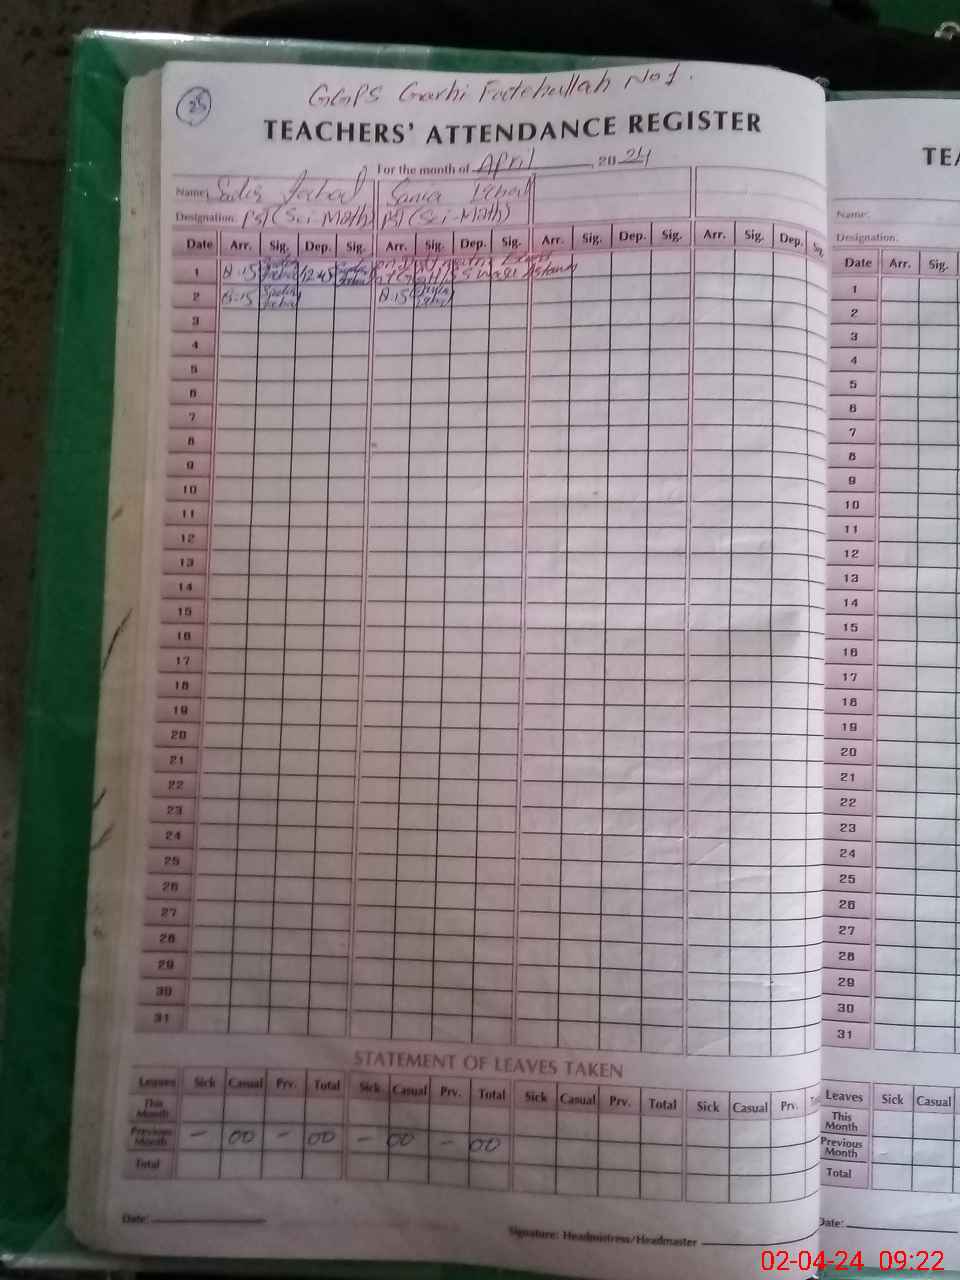 25
GGPS Garhi Fatehullah No 1.
TEACHERS' ATTENDANCE REGISTER
For the month of April, 2024
Name: Sadia Sania Iqbal
Designation: PST (Sci-Math) PST (Sci-Math)
Date Arr. Sig. Dep. Sig. Arr. Sig. Dep. Sig. Arr. Sig. Dep. Sig. Arr. Sig. Dep. Sig.
1 8:15 12:45
2 8:15 8:15
3
4
5
6
7
8
9
10
11
12
13
14
15
16
17
18
19
20
21
22
23
24
25
26
27
28
29
30
31
STATEMENT OF LEAVES TAKEN
Leaves Sick Casual Prv. Total Sick Casual Prv. Total Sick Casual Prv. Total Sick Casual Prv.
This Month
Previous Month - 00 - 00 - 00 - 00
Total
Date:
Signature: Headmistress/Headmaster
TEA
Name:
Designation:
Date Arr. Sig.
1
2
3
4
5
6
7
8
9
10
11
12
13
14
15
16
17
18
19
20
21
22
23
24
25
26
27
28
29
30
31
Leaves Sick Casual
This Month
Previous Month
Total
Date:
02-04-24 09:22